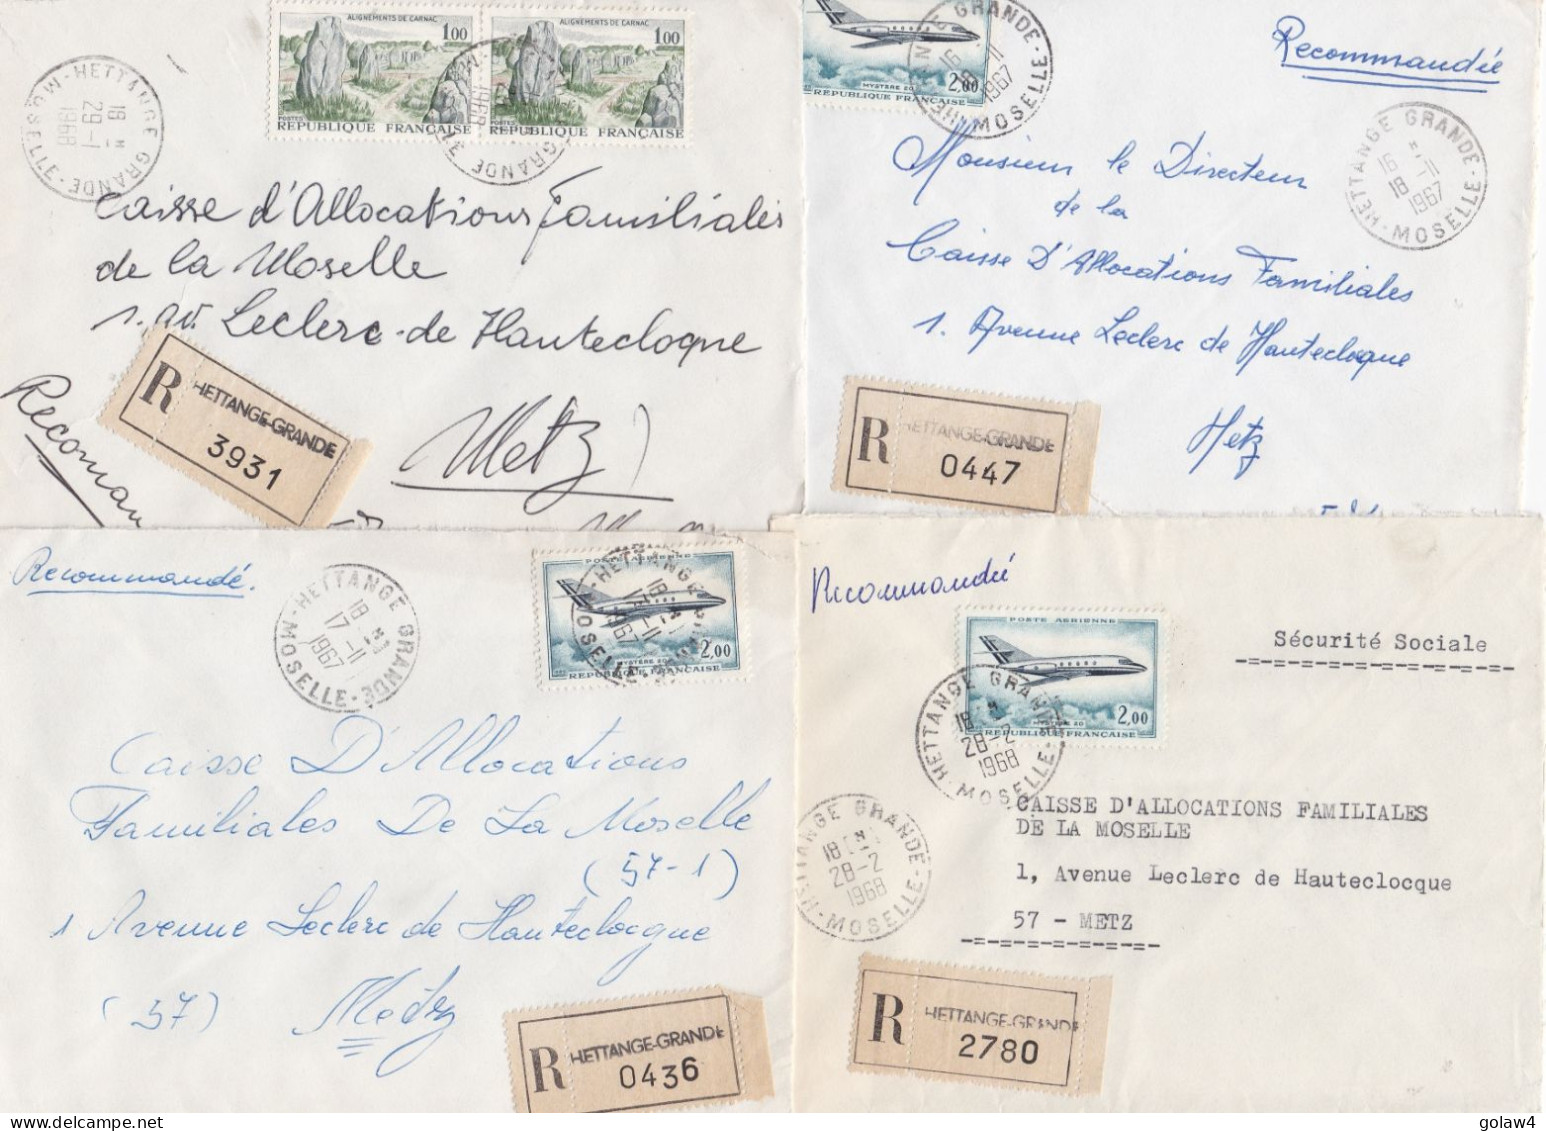 ALIGNEMENTS DE CARNAC
1.00
POSTES
REPUBLIQUE FRANÇAISE
ALIGNEMENTS DE CARNAC
1.00
POSTES
REPUBLIQUE FRANÇAISE
HETTANGE GRANDE
18 H
29-1
1968
MOSELLE
GRANDE
Caisse d'Allocations Familiales
de la Moselle
1. av. Leclerc-de Hautecloque
Metz
R HETTANGE-GRANDE
3931
MYSTÈRE 20
2,00
RÉPUBLIQUE FRANÇAISE
GRANDE
16
18 11
1967
MOSELLE
Recommandée
HETTANGE GRANDE
16 H
18-11
1967
MOSELLE
Monsieur le Directeur
de la
Caisse D'Allocations Familiales
1. Avenue Leclerc de Hautecloque
Metz
R HETTANGE-GRANDE
0447
Recommandé.
HETTANGE GRANDE
18 H
17-11
1967
MOSELLE
POSTE AÉRIENNE
MYSTÈRE 20
2,00
RÉPUBLIQUE FRANÇAISE
HETTANGE
18 H
17-11
1967
MOSELLE
Caisse D'Allocations
Familiales De La Moselle
(57-1)
1 Avenue Leclerc de Hauteclocque
(57) Metz
R HETTANGE-GRANDE
0436
Recommandée
POSTE AÉRIENNE
MYSTÈRE 20
2,00
RÉPUBLIQUE FRANÇAISE
HETTANGE GRANDE
18 H
28-2
1968
MOSELLE
Sécurité Sociale
-=-=-=-=-=-=-=-=-=-
HETTANGE GRANDE
18 H
28-2
1968
MOSELLE
CAISSE D'ALLOCATIONS FAMILIALES
DE LA MOSELLE
1, Avenue Leclerc de Hauteclocque
57 - METZ
-=-=-=-=-=-=-=-
R HETTANGE-GRANDE
2780
golaw4